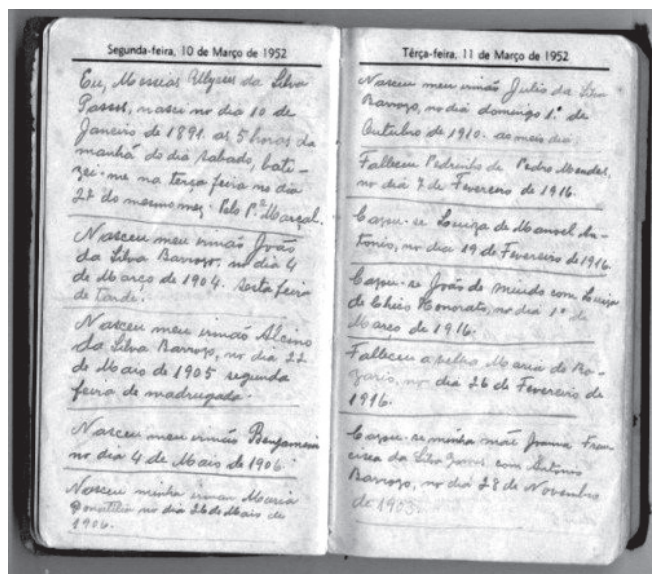 Segunda-feira, 10 de Março de 1952
Eu, Messias Ulysses da Silva
Passos, nasci no dia 10 de
Janeiro de 1891. as 5 horas da
manhã do dia sabado, bati-
zei-me na terça feira no dia
27 do mesmo mez. Pelo P.e Marçal.
Nasceu meu irmão João
da Silva Barrozo, no dia 4
de Março de 1904. Sexta feira
de tarde.
Nasceu meu irmão Alcino
da Silva Barrozo, no dia 22
de Maio de 1905 segunda
feira de madrugada.
Nasceu meu irmão Benjamin
no dia 4 de Maio de 1906
Nasceu minha irman Maria
no dia 26 de Maio de
1906.
Têrça-feira, 11 de Março de 1952
Nasceu meu irmão Julio da Silva
Barrozo, no dia domingo 1º de
Outubro de 1910. ao meio dia.
Falleceu Pedrinho de Pedro Mendes,
no dia 7 de Fevereiro de 1916.
Casou-se Luiza de Manoel An-
tonio, no dia 19 de Fevereiro de 1916.
Casou-se João de mundo com Luiza
de Chico Honorato, no dia 1º de
Março de 1916.
Falleceu a velha Maria do Ro-
zario, no dia 26 de Fevereiro de
1916.
Casou-se minha mãe Joanna Fran-
cisca da Silva com Antonio
Barrozo, no dia 28 de Novembro
de 1903.